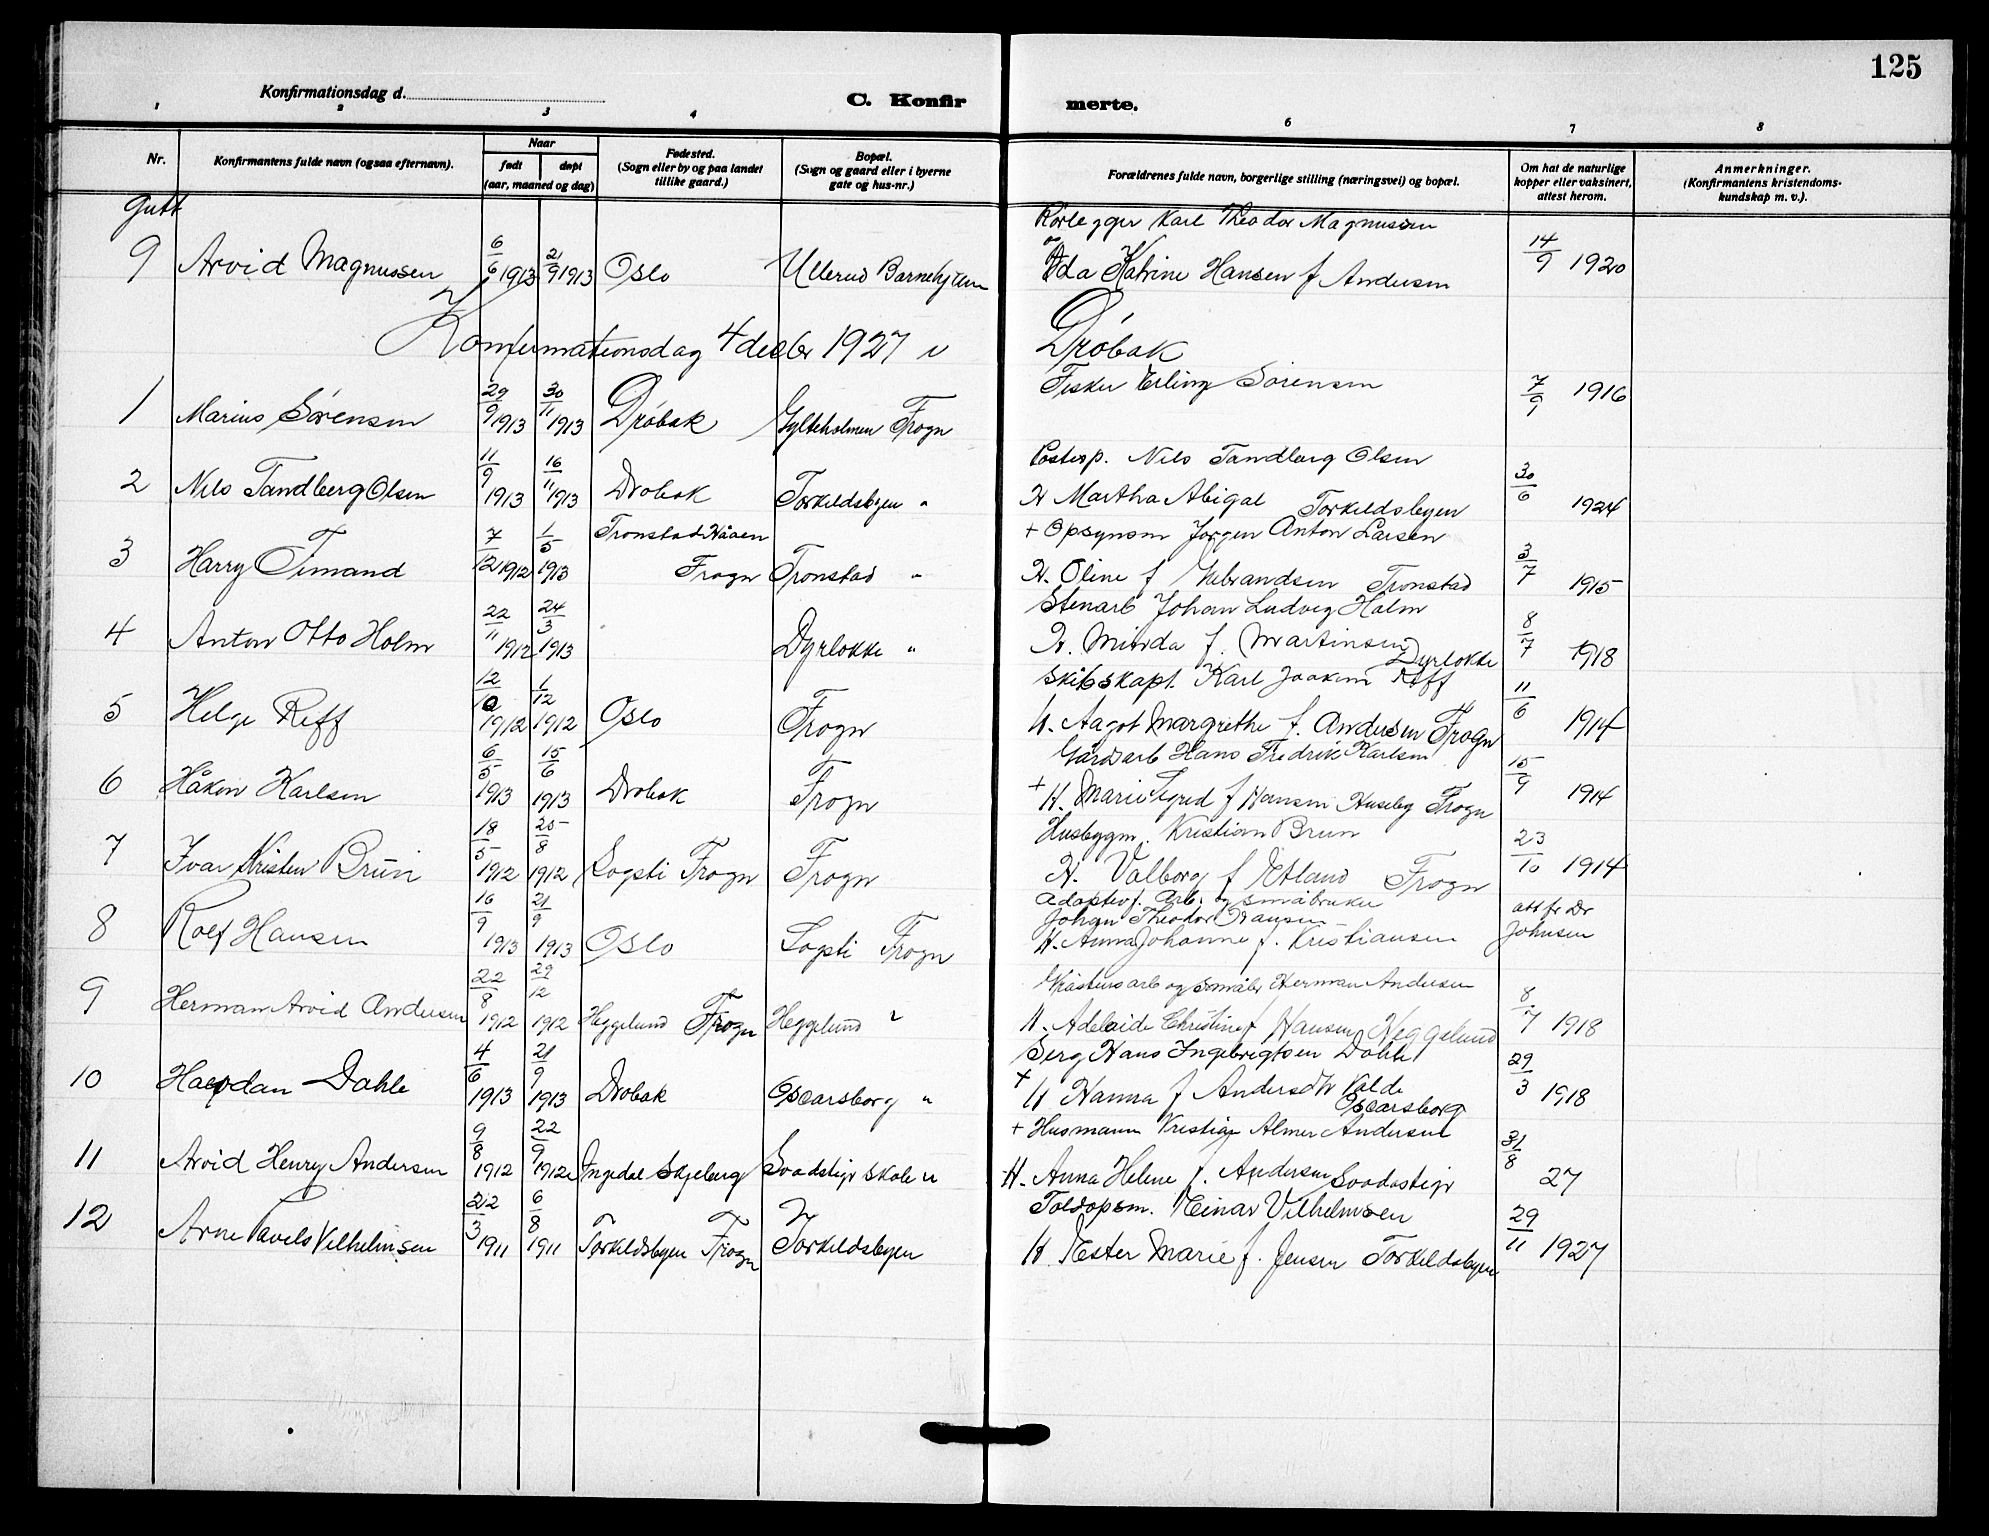 125
Konfirmationsdag d.
C. Konfir merte.
1 2 3 4 5 6 7 8
Nr. Konfirmantens fulde navn (ogsaa efternavn). Naar født døpt (aar, maaned og dag) Fødested. (Sogn eller by og paa landet tillike gaard.) Bopæl. (Sogn og gaard eller i byerne gate og hus-nr.) Forældrenes fulde navn, borgerlige stilling (næringsvei) og bopæl. Om hat de naturlige kopper eller vaksinert, attest herom. Anmerkninger. (Konfirmantens kristendoms-kundskap m. v.).
Gutt
Rørlegger Karl Theodor Magnussen
9 Arvid Magnussen 6/6 1913 21/9 1913 Oslo Ullerud Barnehjem og Ida Katrine Hansen f Andersen 14/9 1920
Konfirmationsdag 4 decbr 1927 i Drøbak
Fisker Erling Sørensen
1 Marius Sørensen 29/9 1913 30/11 1913 Drøbak Gylteholmen Frogn 7/9 1916
Postexp. Nils Tandberg Olsen
2 Nils Tandberg Olsen 11/9 1913 16/11 1913 Drøbak Torkildsbyen " H Martha Abigal Torkildsbyen 30/6 1924
+ Opsynsm Jørgen Anton Larsen
3 Harry Timand 7/12 1912 1/5 1913 Tronstad Frogn Tronstad " H. Oline f Tronstad 3/7 1915
Stenarb Johan Ludvig Holm
4 Anton Otto Holm 22/11 1912 24/3 1913 Dyrløkke " H. Minda f. Martinsen Dyrløkke 8/7 1918
Skibskapt. Karl Joakim Reff
5 Helge Reff 12/10 1912 1/12 1912 Oslo Frogn H. Aagot Margrethe f. Andersen Frogn 11/6 1914
Gårdarb Hans Fredrik Karlsen
6 Håkon Karlsen 6/5 1913 15/6 1913 Drøbak Frogn + H. Marie f Hansen Huseby Frogn 15/9 1914
Husbygm. Kristian Brun
7 Ivar Kristen Brun 18/5 1912 25/8 1912 Sogsti Frogn Frogn H. Valborg f Frogn 23/10 1914
Adoptivf. Arb. og småbruker
Johan Theodor Hansen
8 Rolf Hansen 16/9 1913 21/9 1913 Oslo Sogsti Frogn H. Anna Johanne f. Kristiansen att fr Dr Johnsen
arb og småbr Herman Andersen
9 Herman Arvid Andersen 22/8 1912 29/12 1912 Heggelund Frogn Heggelund " H. Adelaide Christine f Hansen Heggelund 8/7 1918
Serg Hans Ingebrigtsen Dahle
10 Halfdan Dahle 4/6 1913 21/9 1913 Drøbak Oscarsborg " + H Hanna f Andersdtr Oscarsborg 29/3 1918
+ Husmann Kristian Almer Andersen
11 Arvid Henry Andersen 9/8 1912 22/9 1912 Ingedal Skjeberg Svadstign skole " H. Anna Helene f. Andersen 31/8 27
Toldopsm. Einar Vilhelmsen
12 Arne Pavels Vilhelmsen 22/3 1911 6/8 1911 Torkildsbyen Frogn Torkildsbyen H Ester Marie f. Jensen Torkildsbyen 29/11 1927